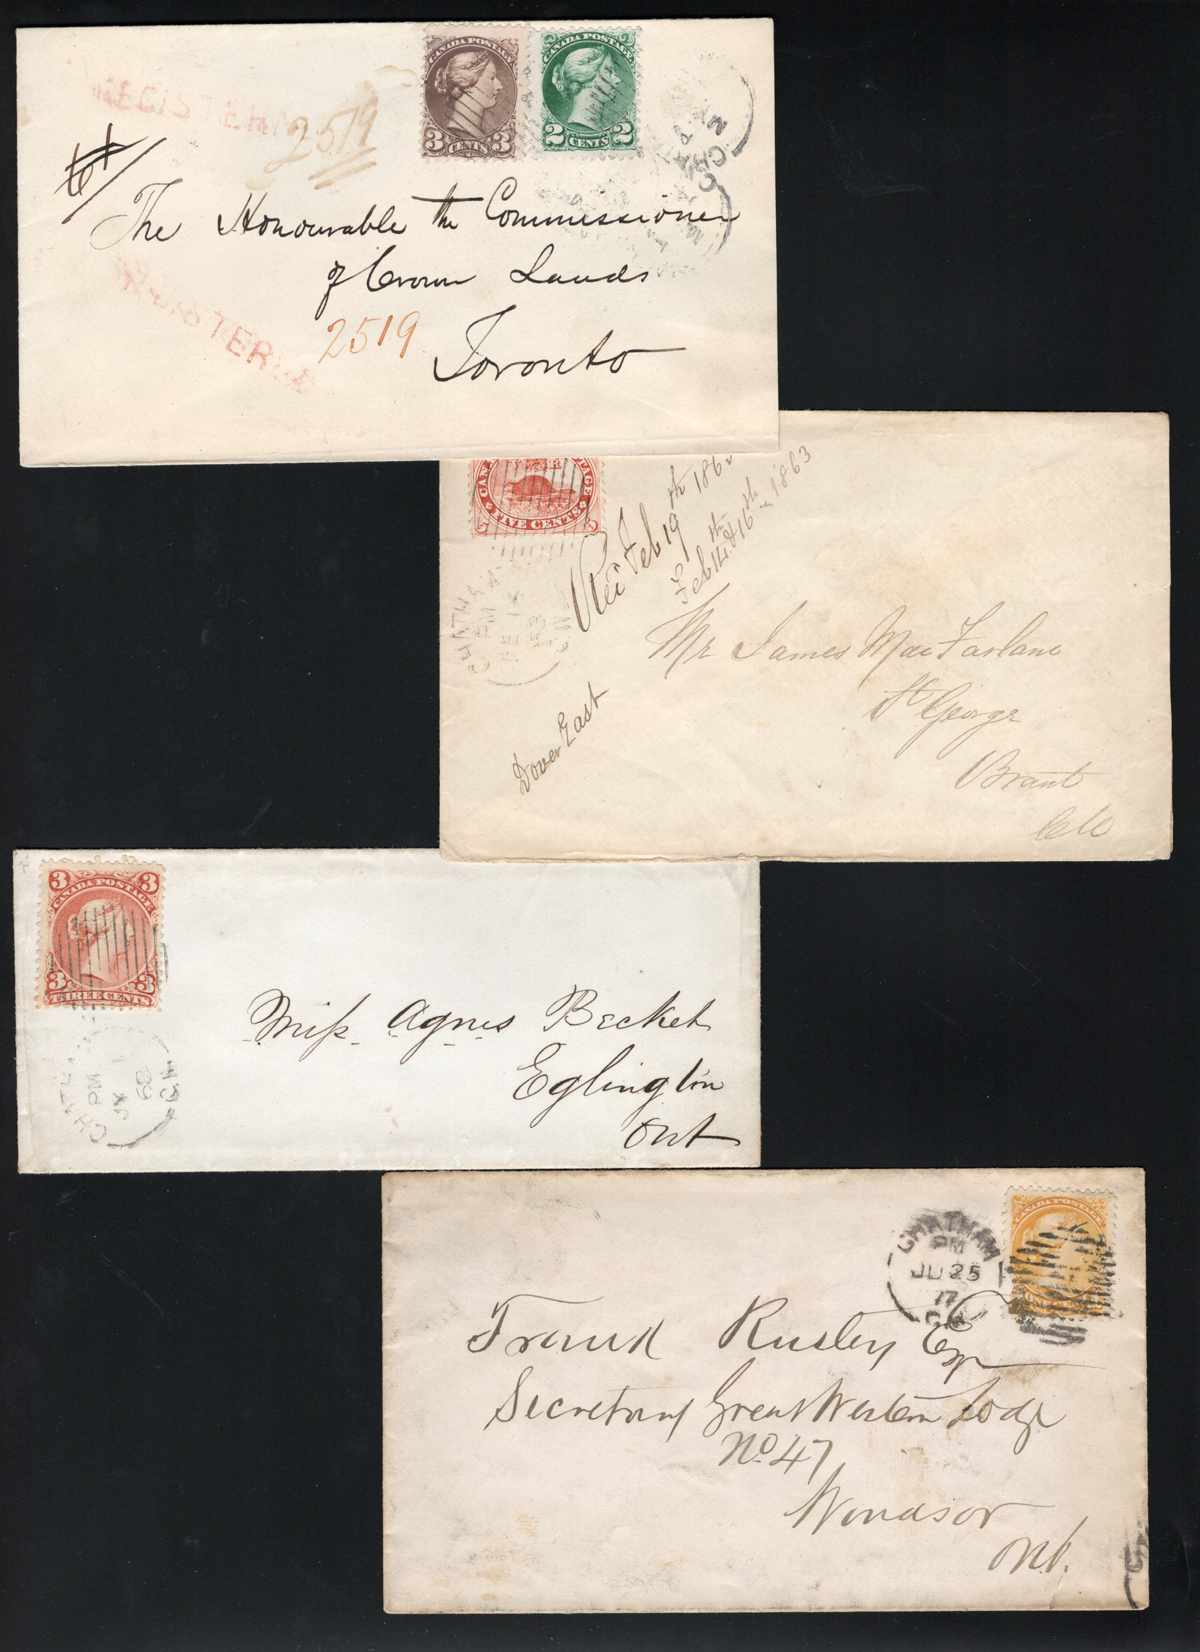 REGISTERED
2519
CANADA POSTAGE
3 CENTS 3
CANADA POSTAGE
2 CENTS 2
CHAT
The Honourable the Commissioner
of Crown Lands
2519
Toronto
REGISTERED
FIVE CENTS
5 5
Rec Feb 19th 1863
Feb 14 & 16th 1863
CHATHAM
PM
Mr James MacFarlane
St George
Brant
CW
Dover East
3 3
CANADA POSTAGE
3 3
THREE CENTS
CHATHAM
PM
Miss Agnes Becket
Eglington
Ont
CANADA POSTAGE
ONE
CHATHAM
PM
JU 25
77
Frank Rusley Esqr
Secretary Great Western Lodge
No 47
Windsor
Ont.